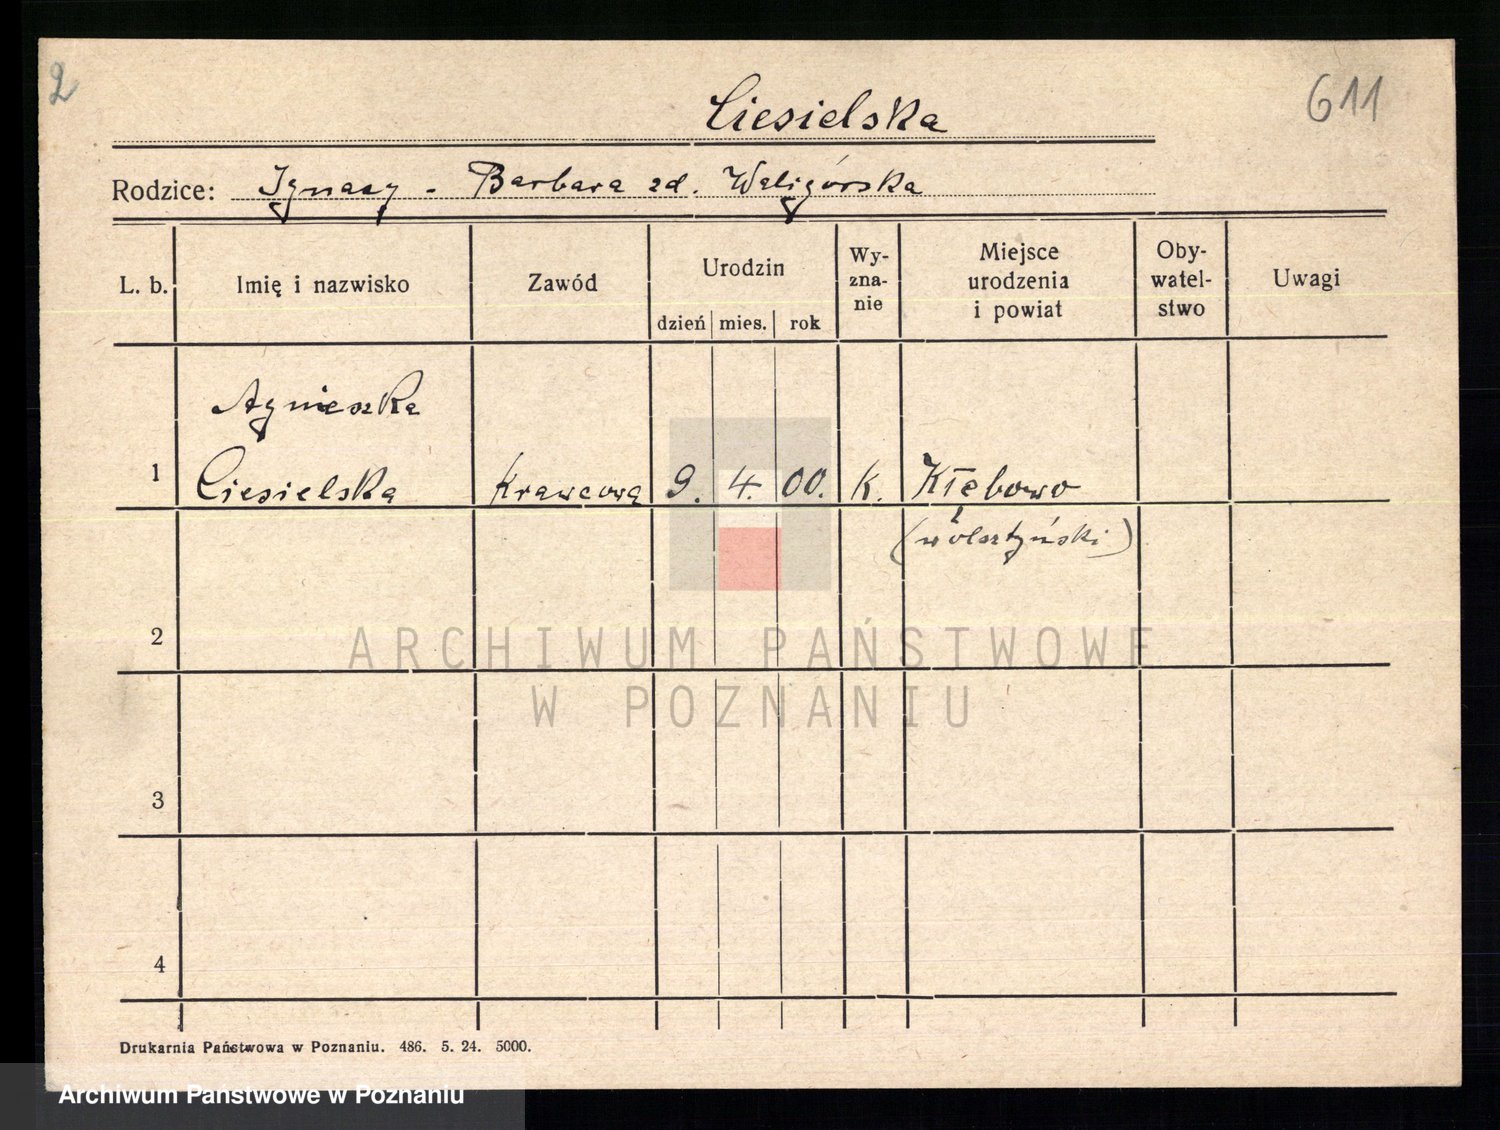 2
611
Ciesielska
Rodzice: Ignacy - Barbara zd. Waligórska
L. b. Imię i nazwisko Zawód Urodzin Wy-
zna-
nie Miejsce
urodzenia
i powiat Oby-
watel-
stwo Uwagi
dzień mies. rok
Agnieszka
1 Ciesielska Krawcowa 9. 4. 00. K. Kłębowo
(wolsztyński)
2
ARCHIWUM PAŃSTWOWE
W POZNANIU
3
4
Drukarnia Państwowa w Poznaniu. 486. 5. 24. 5000.
Archiwum Państwowe w Poznaniu